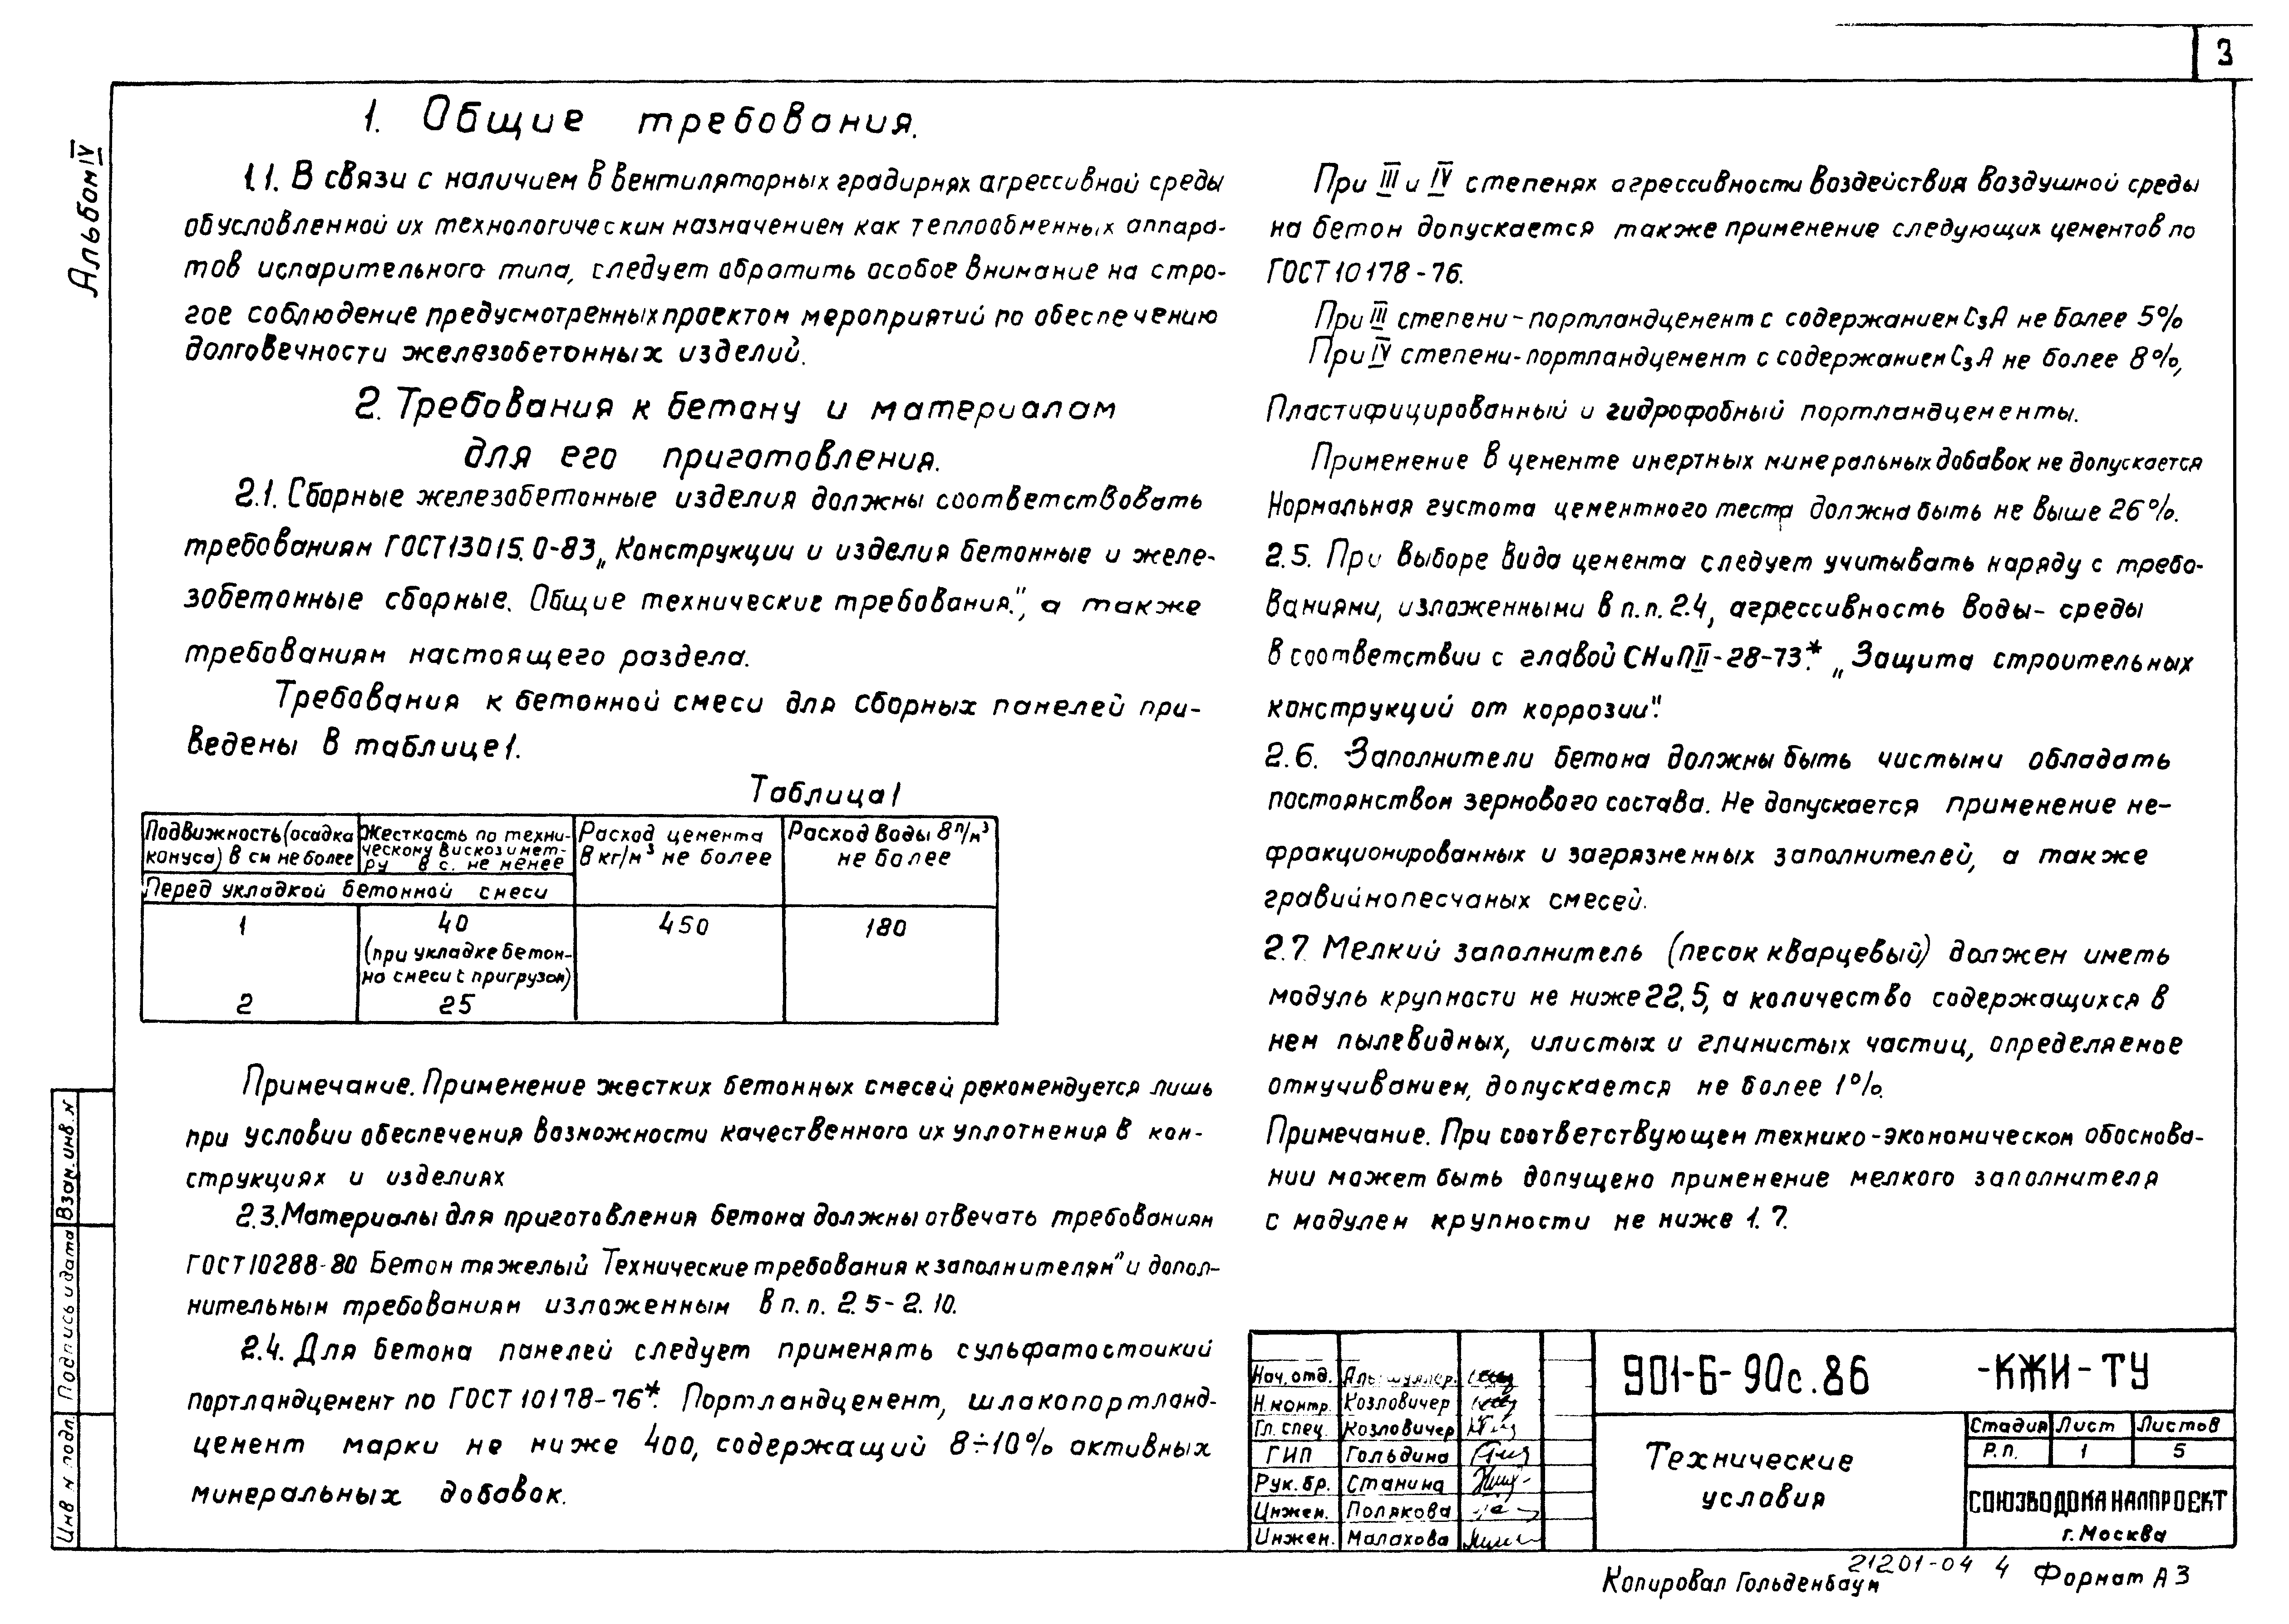 3
Альбом IV
1. Общие требования.
1.1. В связи с наличием в вентиляторных градирнях агрессивной среды
обусловленной их технологическим назначением как теплообменных аппара-
тов испарительного типа, следует обратить особое внимание на стро-
гое соблюдение предусмотренных проектом мероприятий по обеспечению
долговечности железобетонных изделий.
2. Требования к бетону и материалам
для его приготовления.
2.1. Сборные железобетонные изделия должны соответствовать
требованиям ГОСТ 13015.0-83 „Конструкции и изделия бетонные и желе-
зобетонные сборные. Общие технические требования.", а также
требованиям настоящего раздела.
Требования к бетонной смеси для сборных панелей при-
ведены в таблице 1.
Таблица 1
Подвижность (осадка конуса) в см не более
Жесткость по техни-
ческому вискозимет-
ру в с. не менее
Расход цемента
в кг/м³ не более
Расход воды в л/м³
не более
Перед укладкой бетонной смеси
1 40 450 180
(при укладке бетон-
но смеси с пригрузом)
2 25
Примечание. Применение жестких бетонных смесей рекомендуется лишь
при условии обеспечения возможности качественного их уплотнения в кон-
струкциях и изделиях
2.3. Материалы для приготовления бетона должны отвечать требованиям
ГОСТ 10288-80 Бетон тяжелый Технические требования к заполнителям" и допол-
нительным требованиям изложенным в п.п. 2.5-2.10.
2.4. Для бетона панелей следует применять сульфатостоикий
портландцемент по ГОСТ 10178-76*. Портландцемент, шлакопортланд-
цемент марки не ниже 400, содержащий 8÷10% активных
минеральных добавок.
При III и IV степенях агрессивности воздействия воздушной среды
на бетон допускается также применение следующих цементов по
ГОСТ 10178-76.
При III степени-портландцемент с содержанием C₃A не более 5%
При IV степени-портландцемент с содержанием C₃A не более 8%,
Пластифицированный и гидрофобный портландцементы.
Применение в цементе инертных минеральных добавок не допускается
Нормальная густота цементного теста должна быть не выше 26%.
2.5. При выборе вида цемента следует учитывать наряду с требо-
ваниями, изложенными в п.п. 2.4, агрессивность воды-среды
в соответствии с главой СНиП II-28-73*. „Защита строительных
конструкций от коррозии".
2.6. Заполнители бетона должны быть чистыми обладать
постоянством зернового состава. Не допускается применение не-
фракционированных и загрязненных заполнителей, а также
гравийнопесчаных смесей.
2.7. Мелкий заполнитель (песок кварцевый) должен иметь
модуль крупности не ниже 22.5, а количество содержащихся в
нем пылевидных, илистых и глинистых частиц, определяемое
отмучиванием, допускается не более 1%.
Примечание. При соответствующем технико-экономическом обоснова-
нии может быть допущено применение мелкого заполнителя
с модулем крупности не ниже 1.7.
Нач. отд. Альтшуллер.
Н. контр. Козловичер
Гл. спец. Козловичер
ГИП Гольдина
Рук. бр. Станина
Инжен. Полякова
Инжен. Малахова
901-6-90с.86 -КЖИ-ТУ
Технические
условия
Стадия Лист Листов
Р.п. 1 5
СОЮЗВОДОКАНАЛПРОЕКТ
г. Москва
Инв N подл. Подпись и дата Взам. инв. N
21201-04 4
Копировал Гольденбаум Формат А3